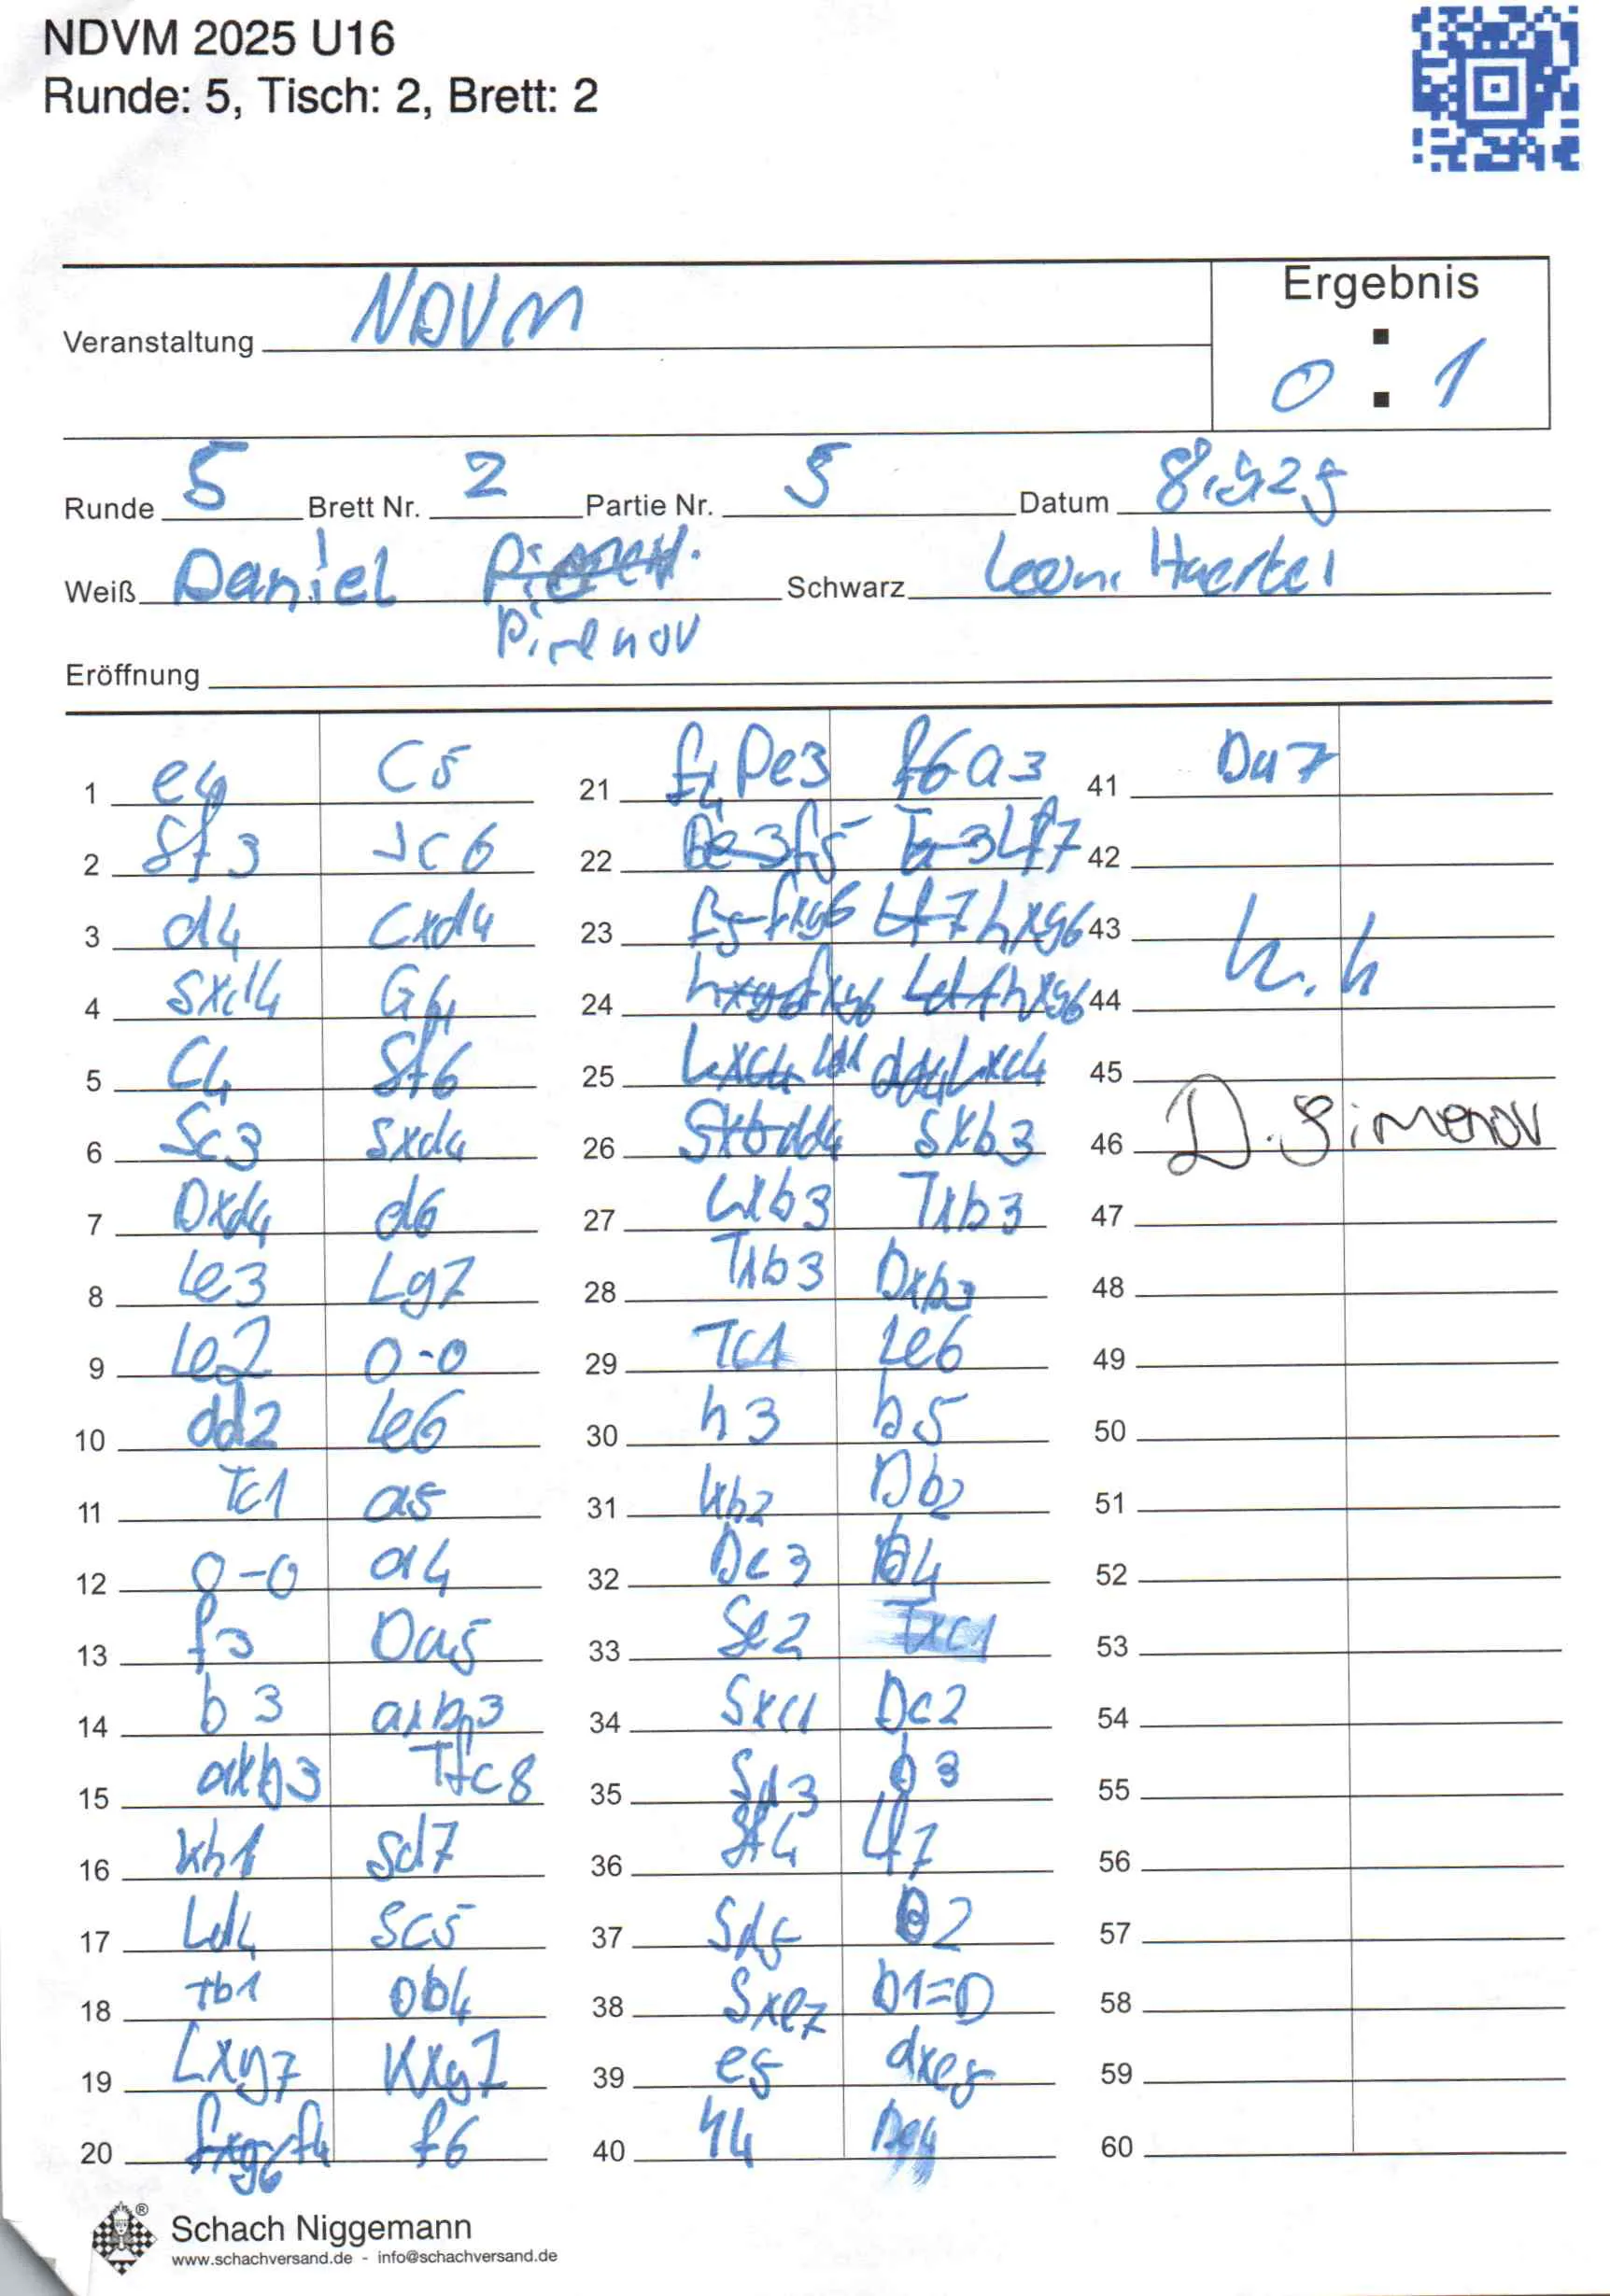 NDVM 2025 U16
Runde: 5, Tisch: 2, Brett: 2
Ergebnis
Veranstaltung NDVM
0 : 1
Runde 5 Brett Nr. 2 Partie Nr. 5 Datum
Weiß Daniel Schwarz Leoni Haertel
Eröffnung
1 e4 c5
2 Sf3 Sc6
3 d4 Cxd4
4 Sxd4 G6
5 C4 Sf6
6 Sc3 Sxd4
7 Dxd4 d6
8 Le3 Lg7
9 Le2 0-0
10 dd2 Le6
11 Tc1 a5
12 0-0 a4
13 f3 Da5
14 b3 axb3
15 axb3 Tfc8
16 Kh1 Sd7
17 Ld4 Sc5
18 Tb1 Db4
19 Lxg7 Kxg7
20 f4 f6
21 De3 a3
22 f5 Lf7
23 fxg6 hxg6
24
25 Lxc4
26 dd4 Sxb3
27 Lxb3 Txb3
28 Txb3 Dxb3
29 Tc1 Le6
30 h3 b5
31 Kh2 Db2
32 Dc3 b4
33 Se2 Txc1
34 Sxc1 Dc2
35 Sd3 b3
36 Sf4 Lf7
37 Sd5 b2
38 Sxe7 b1=D
39 e5 dxe5
40 h4 Dg4
41 Da7
42
43
44
45
46 D. Pimenov
47
48
49
50
51
52
53
54
55
56
57
58
59
60
Schach Niggemann
www.schachversand.de - info@schachversand.de